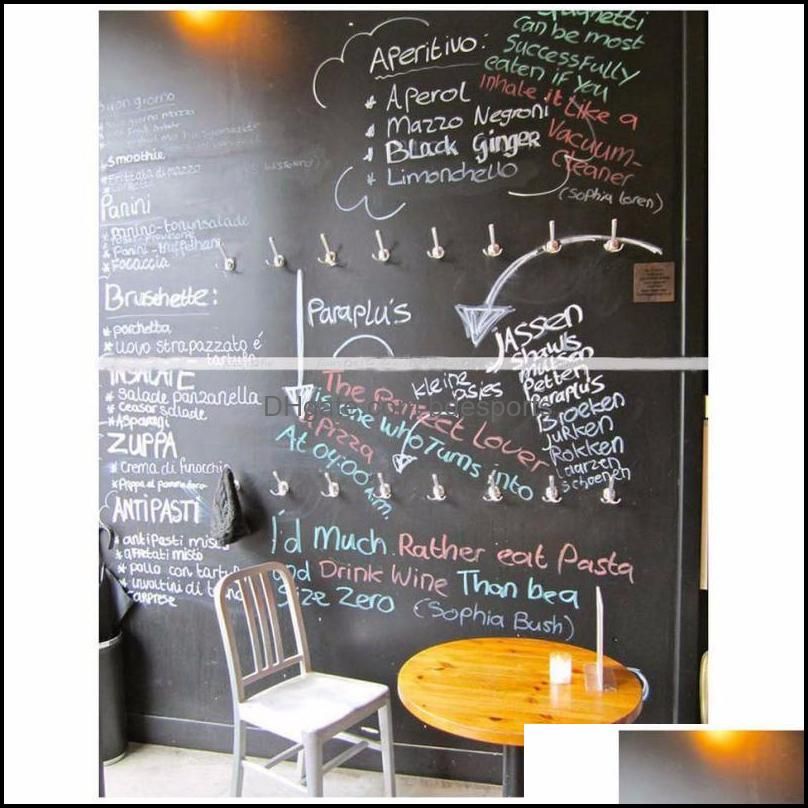 Buon giorno
Smoothie
Panini
Focaccia
Bruschette:
* porchetta
* uovo strapazzato é
INSALATE
* Salade panzanella
* Ceasar salade
* Asparagi
ZUPPA
* Crema di finocchio
ANTIPASTI
* antipasti misti
* affettati misto
* pollo con
* involtini di
CAPRESE
Aperitivo:
* Aperol
* Mazzo Negroni
* Black Ginger
* Limonchello
Spaghetti
can be most
Successfully
eaten if you
inhale it Like a
Vacuum-
Cleaner
(Sophia Loren)
Paraplu's
kleine
jasjes
JASSEN
Shawls
mutsen
Petten
Paraplus
Broeken
Jurken
Rokken
Laarzen
Schoenen
The Perfect Lover
is one who Turns into
a pizza
At 04:00 k.m.
I'd Much Rather eat Pasta
and Drink Wine Than be a
Size Zero (Sophia Bush)